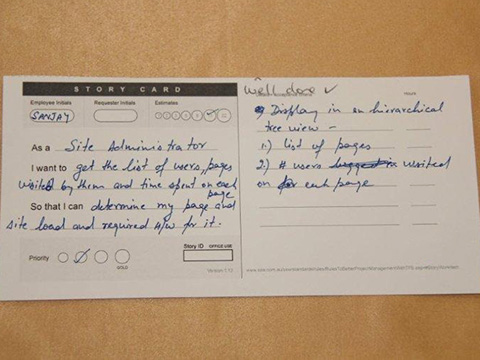 STORY CARD
Employee Initials Requester Initials Estimates
SANJAY
As a Site Administrator
I want to get the list of users, pages
visited by them and time spent on each
page
So that I can determine my page and
site load and required H/W for it.
Priority
GOLD
Story ID OFFICE USE
Version 1.10
Well done ✓
Hours
Display in an hierarchical
tree view –
1.) list of pages
2.) # users logged in visited
on for each page